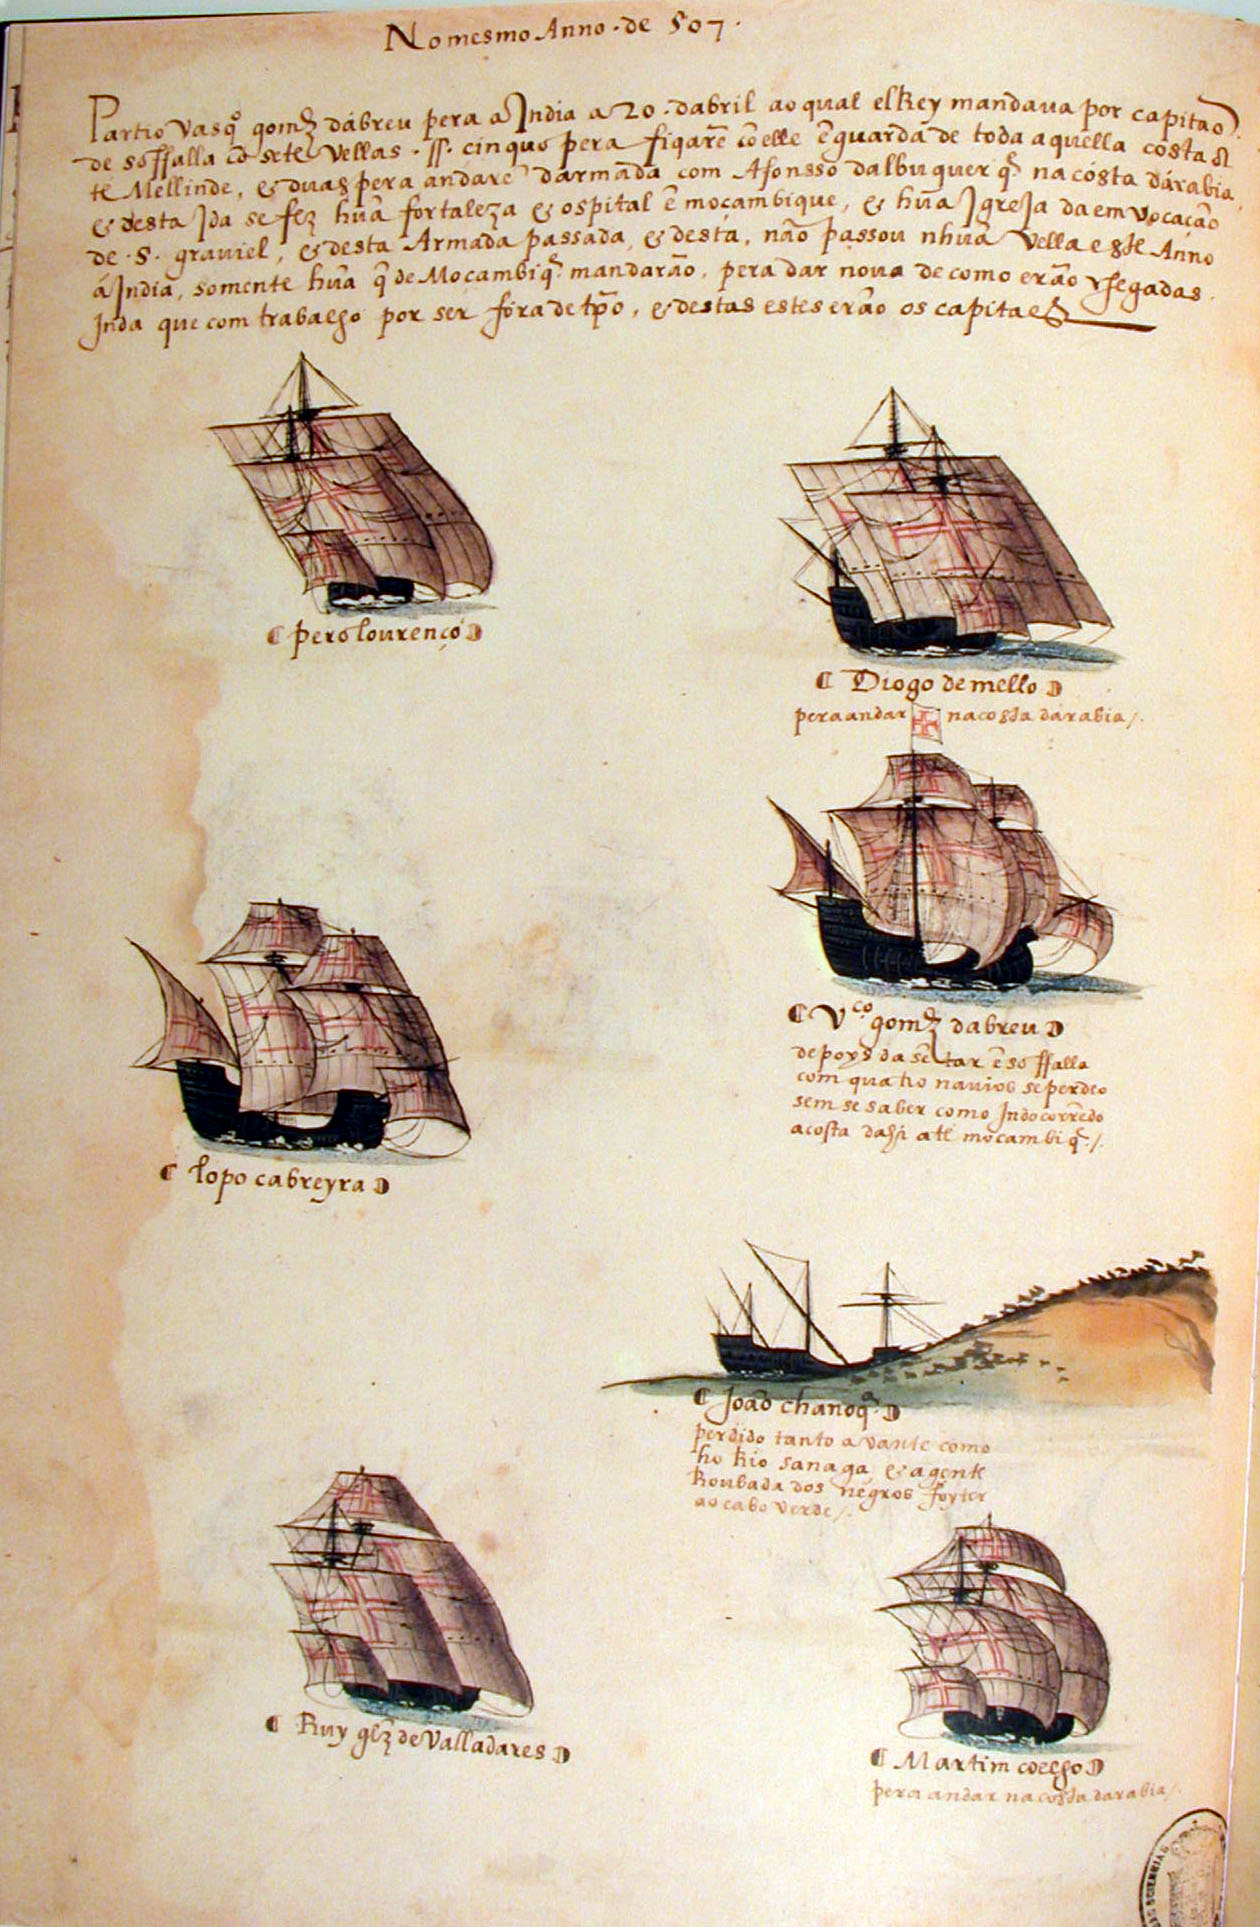 No mesmo Anno · de 507 ·
Partio Vasqº gomz dabreu pera a Jndia a 20 · dabril ao qual el Rey mandaua por capitaõ
de soffalla cõ sete Vellas · ſſ · cinquo pera fiqarẽ cõ elle ẽ guarda de toda aquella costa
te Mellinde, & duas pera andarẽ darmada com Afonsso dalbuquerq̃ na costa dárabia,
& desta Jda se fez hũa fortaleza & ospital ẽ moçambique, & hũa Jgreja da emvocação
de · S · grauiel, & desta Armada passada, & desta, não passou nhũa Vella este Anno
á Jndia, somente hũa q̃ de Moçambiq̃ mandarão, pera dar noua de como erão
Jnda que com trabalho por ser fora de tp̃o, & destas estes erão os capitaes
pero lourenço
Diogo de mello
pera andar na costa dárabia /.
Vco gomz dabreu
depoys da sẽtar ẽ soffalla
com quatro nauios se perdeo
sem se saber como Jndo corrẽdo
a costa dahi até moçambiq̃ /.
lopo cabreyra
João chanoq̃
perdido tanto a vante como
ho Rio sanaga & a gente
Roubada dos negros foy ter
ao cabo verde /.
Ruy glz de Valladares
Martim coelho
pera andar na costa darabia /.